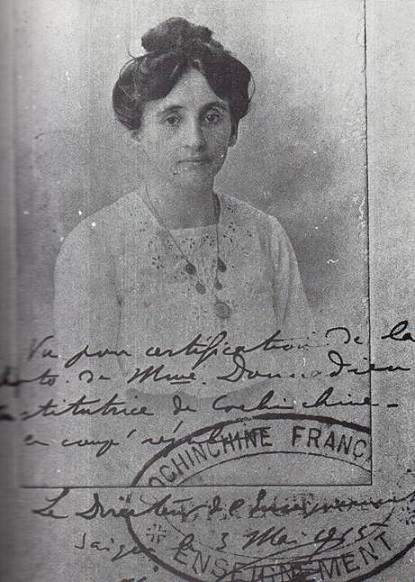 Vu pour certification de la
photo de Mme. Donnadieu
institutrice de Cochinchine -
en congé régulier
COCHINCHINE FRANÇ
Le Directeur de l'Enseignement
Saigon le 3 Mai
ENSEIGNEMENT